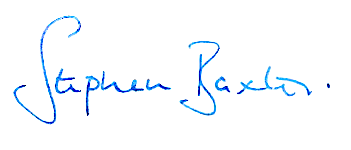 Stephen Baxter.